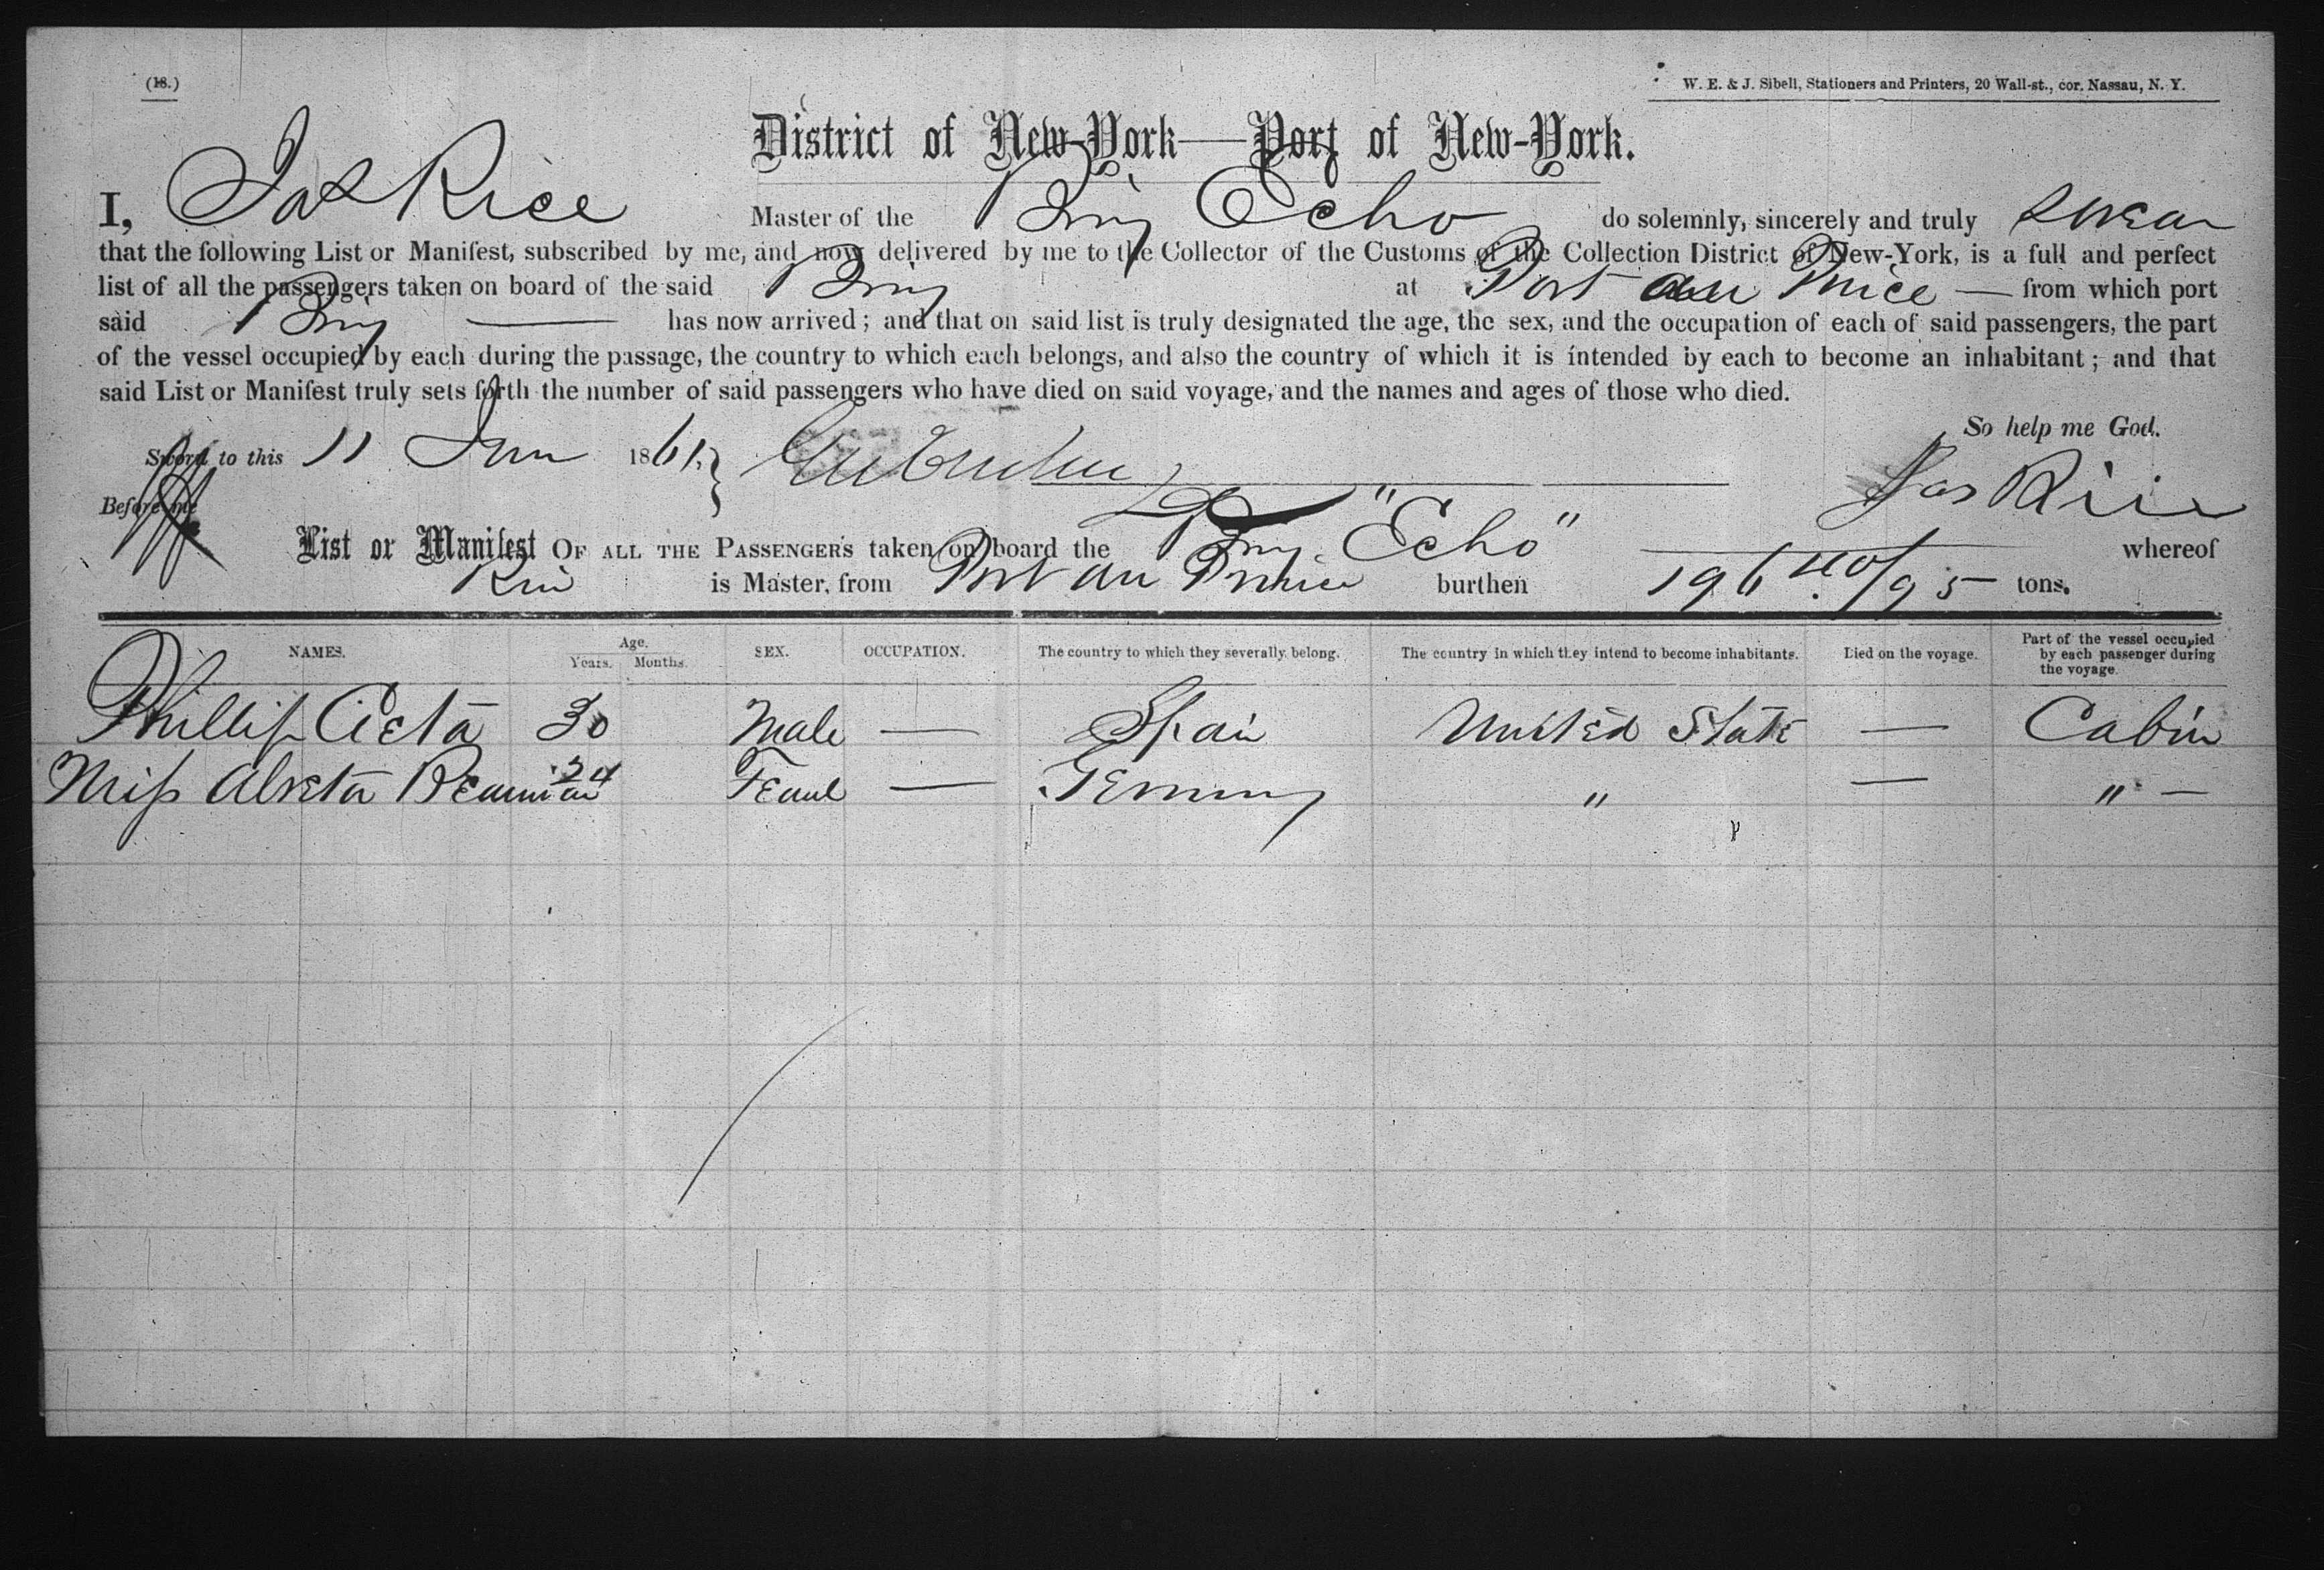 (18.)
W. E. & J. Sibell, Stationers and Printers, 20 Wall-st., cor. Nassau, N. Y.
District of New-York—Port of New-York.
I, Jas Rice Master of the Brig Echo do solemnly, sincerely and truly swear
that the following List or Manifest, subscribed by me, and now delivered by me to the Collector of the Customs of the Collection District of New-York, is a full and perfect
list of all the passengers taken on board of the said Brig at Port au Prince — from which port
said Brig — has now arrived; and that on said list is truly designated the age, the sex, and the occupation of each of said passengers, the part
of the vessel occupied by each during the passage, the country to which each belongs, and also the country of which it is intended by each to become an inhabitant; and that
said List or Manifest truly sets forth the number of said passengers who have died on said voyage, and the names and ages of those who died.
So help me God.
Sworn to this 11 1861.
Jas Rice
Before me
List or Manifest OF ALL THE PASSENGERS taken on board the Brig "Echo" whereof
Rice is Master, from Port au Prince burthen 196 40/95 tons.
NAMES. Age. Years. Months. SEX. OCCUPATION. The country to which they severally belong. The country in which they intend to become inhabitants. Died on the voyage. Part of the vessel occupied by each passenger during the voyage.
Phillip Acta 30 Male — Spain United State — Cabin
Miss 24 — Germany " — " —